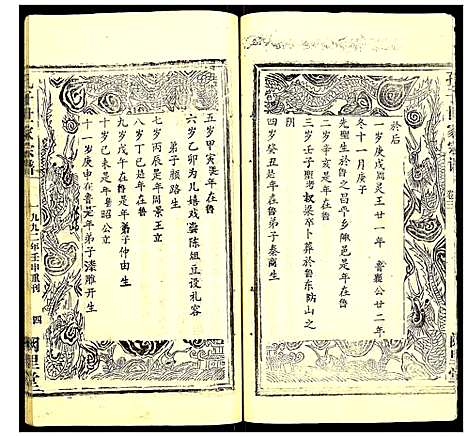 孔子世家宗譜 卷三
闕里堂
於后
一歲庚戌周灵王廿一年 魯襄公廿二年
冬十一月庚子
先聖生於魯之昌平乡陬邑是年在魯
三歲壬子聖考叔梁卒卜葬於魯东防山之
阴
四歲癸丑是年在魯弟子秦商生
五岁甲寅是年在魯
六岁乙卯为儿嬉戏尝陈俎豆设礼容
弟子颜路生
七岁丙辰是年周景王立
八岁丁已是年在魯
九岁戊午在魯是年弟子仲由生
十歲己未是年魯昭公立
十一岁庚申在魯是年弟子漆雕开生
世家宗譜
一九九二年壬申重刊
四
闕里堂